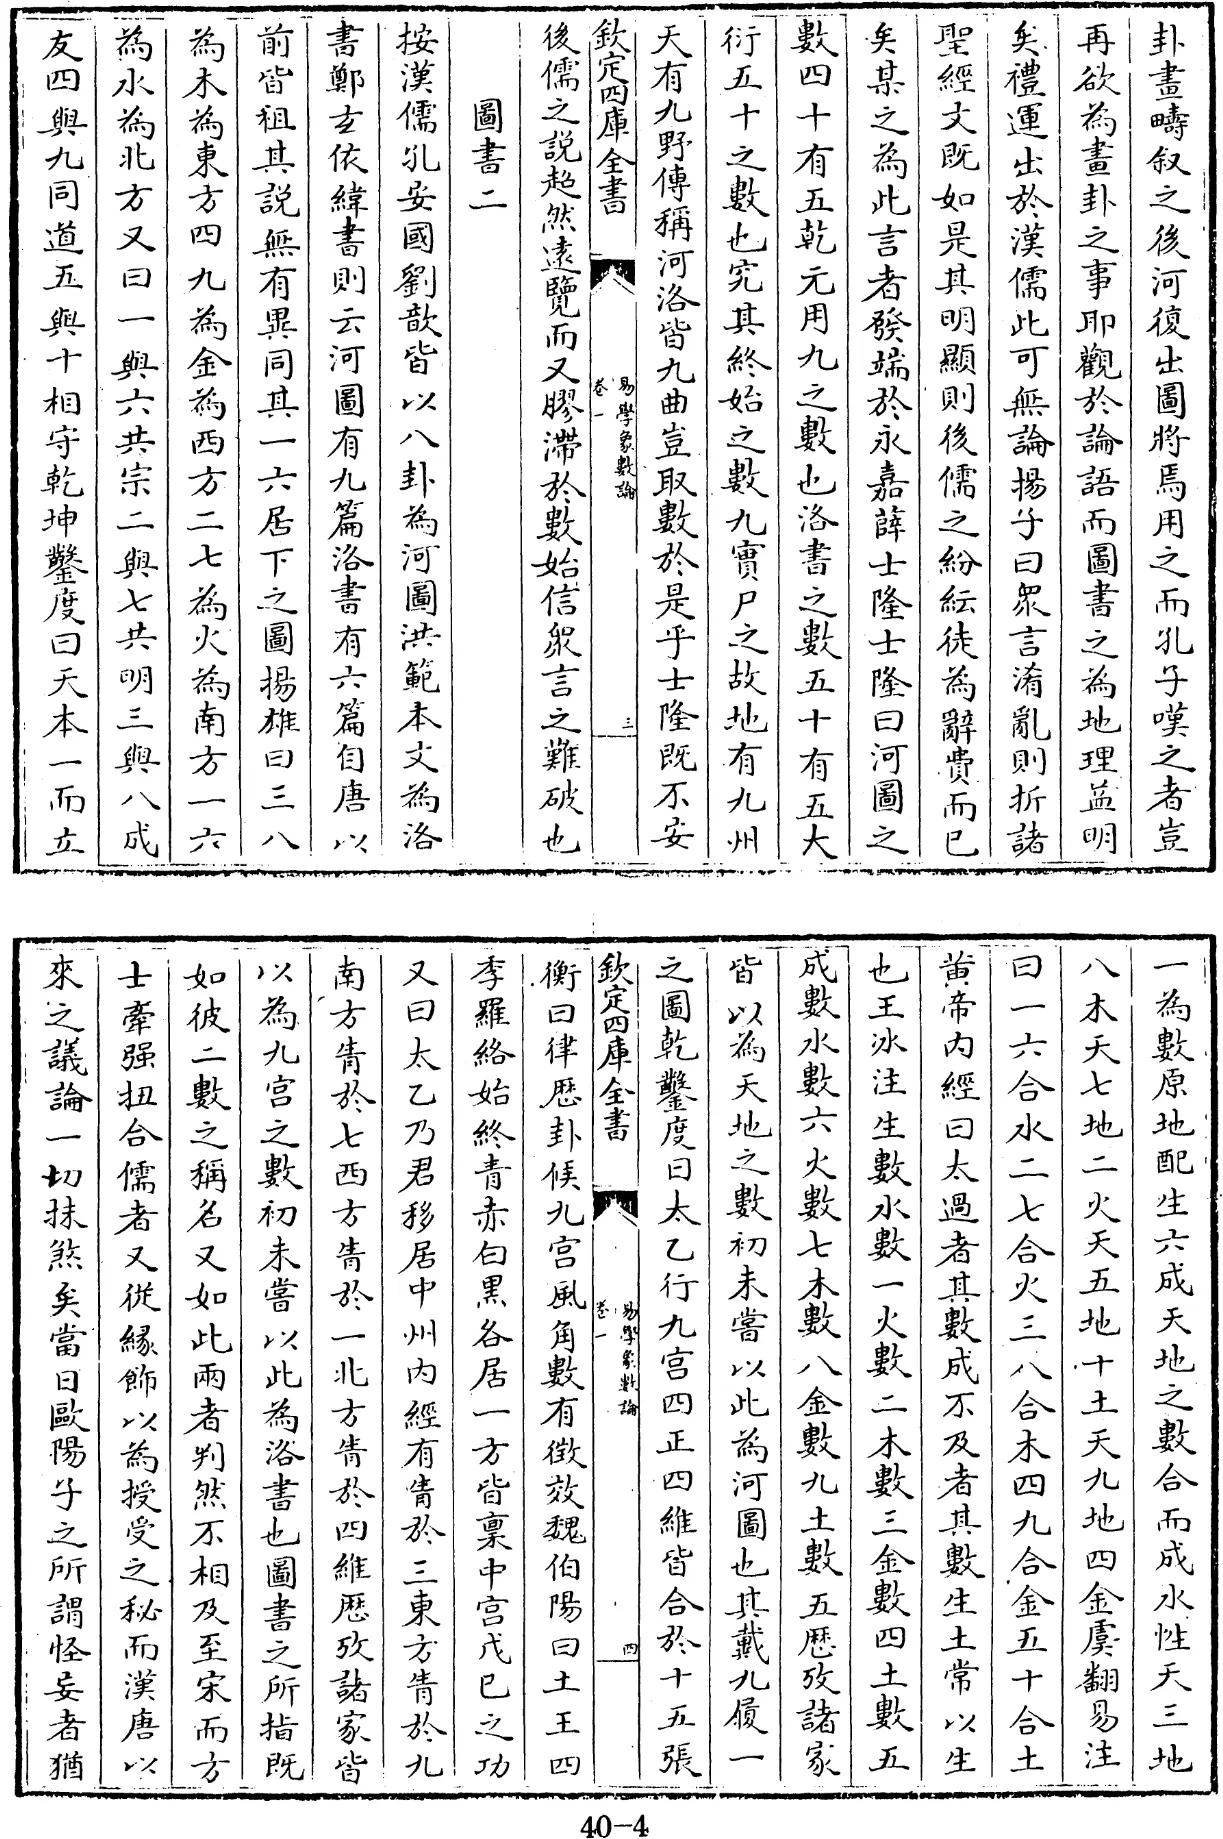 卦畫疇叙之後河復出圖將焉用之而孔子嘆之者豈
再欲為畫卦之事耶觀於論語而圖書之為地理益明
矣禮運出於漢儒此可無論揚子曰衆言淆亂則折諸
聖經文既如是其明顯則後儒之紛紜徒為辭費而已
矣某之為此言者發端於永嘉薛士隆士隆曰河圖之
數四十有五乾元用九之數也洛書之數五十有五大
衍五十之數也究其終始之數九實尸之故地有九州
天有九野傳稱河洛皆九曲豈取數於是乎士隆既不安
欽定四庫全書
易學象數論
卷一
三
後儒之説超然遠覽而又膠滯於數始信衆言之難破也
圖書二
按漢儒孔安國劉歆皆以八卦為河圖洪範本文為洛
書鄭玄依緯書則云河圖有九篇洛書有六篇自唐以
前皆祖其説無有異同其一六居下之圖揚雄曰三八
為木為東方四九為金為西方二七為火為南方一六
為水為北方又曰一與六共宗二與七共明三與八成
友四與九同道五與十相守乾坤鑿度曰天本一而立
一為數原地配生六成天地之數合而成水性天三地
八木天七地二火天五地十土天九地四金虞翻易注
曰一六合水二七合火三八合木四九合金五十合土
黄帝内經曰太過者其數成不及者其數生土常以生
也王冰注生數水數一火數二木數三金數四土數五
成數水數六火數七木數八金數九土數五歴攷諸家
皆以為天地之數初未嘗以此為河圖也其戴九履一
之圖乾鑿度曰太乙行九宫四正四維皆合於十五張
欽定四庫全書
易學象數論
卷一
四
衡曰律歴卦候九宫風角數有徴效魏伯陽曰土王四
季羅絡始終青赤白黑各居一方皆稟中宫戊已之功
又曰太乙乃君移居中州内經有眚於三東方眚於九
南方眚於七西方眚於一北方眚於四維歴攷諸家皆
以為九宫之數初未嘗以此為洛書也圖書之所指既
如彼二數之稱名又如此兩者判然不相及至宋而方
士牽强扭合儒者又從緣飾以為授受之秘而漢唐以
來之議論一切抹煞矣當日歐陽子之所謂怪妄者猶
40-4